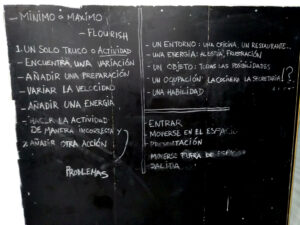 - MINIMO O MAXIMO
- FLOURISH
1. UN SOLO TRUCO O ACTIVIDAD
- ENCUENTRA UNA VARIACIÓN
- AÑADIR UNA PREPARACIÓN
- VARIAR LA VELOCIDAD
- AÑADIR UNA ENERGIA
- HACER LA ACTIVIDAD
DE MANERA INCORRECTA Y
2. AÑADIR OTRA ACCIÓN
PROBLEMAS
- UN ENTORNO: UNA OFICINA, UN RESTAURANTE...
- UNA ENERGÍA: ALEGRÍA, FRUSTRACIÓN
- UN OBJETO: TODAS LAS POSIBILIDADES
- UN OCUPACIÓN LA COCINERO LA SECRETARIA ?
- UNA HABILIDAD
- ENTRAR
- MOVERSE EN EL ESPACIO
- PRESENTACIÓN
MOVERSE FUERA DE ESPACIO
- SALIDA